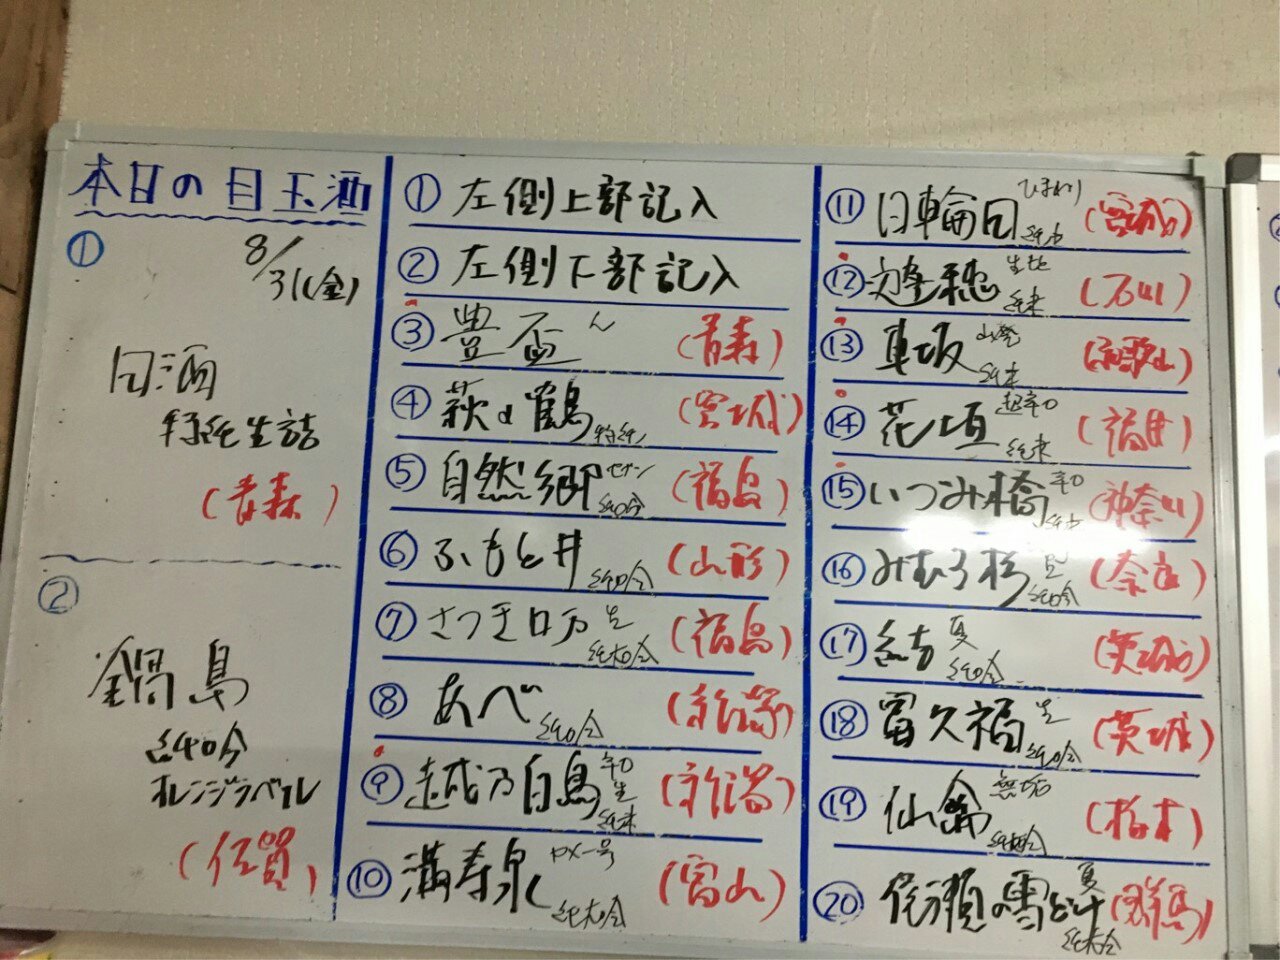 本日の目玉酒
①
8/31(金)
田酒
特純生詰
(青森)
②
鍋島
純吟
オレンジラベル
(佐賀)
① 左側上部記入
② 左側下部記入
③ 豊盃 ん (青森)
④ 萩の鶴 特純 (宮城)
⑤ 自然郷 セブン 純吟 (福島)
⑥ ふもと井 純吟 (山形)
⑦ さつき口万 生 純大吟 (福島)
⑧ あべ 純吟 (新潟)
⑨ 越乃白鳥 辛口 生 純米 (新潟)
⑩ 満寿泉 PX一号 純大吟 (富山)
⑪ 日輪田 ひまわり (宮城)
⑫ 遊穂 生酛 純米 (石川)
⑬ 車坂 山廃 純米 (和歌山)
⑭ 花垣 超辛口 純米 (福井)
⑮ いづみ橋 辛口 (神奈川)
⑯ みむろ杉 純吟 (奈良)
⑰ 結ゆい 夏 純吟 (茨城)
⑱ 富久福 生 純吟 (茨城)
⑲ 仙禽 無垢 (栃木)
⑳ 尾瀬の雪どけ 夏 純大吟 (群馬)